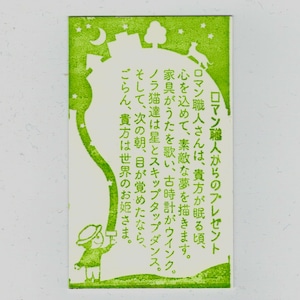 ロマン職人からのプレゼント
ロマン職人さんは、貴方が眠る頃、
心を込めて、素敵な夢を描きます。
家具がうたを歌い、古時計がウインク。
ノラ猫達は星とスキップタップダンス。
そして、次の朝、目が覚めたなら、
ごらん、貴方は世界のお姫さま。